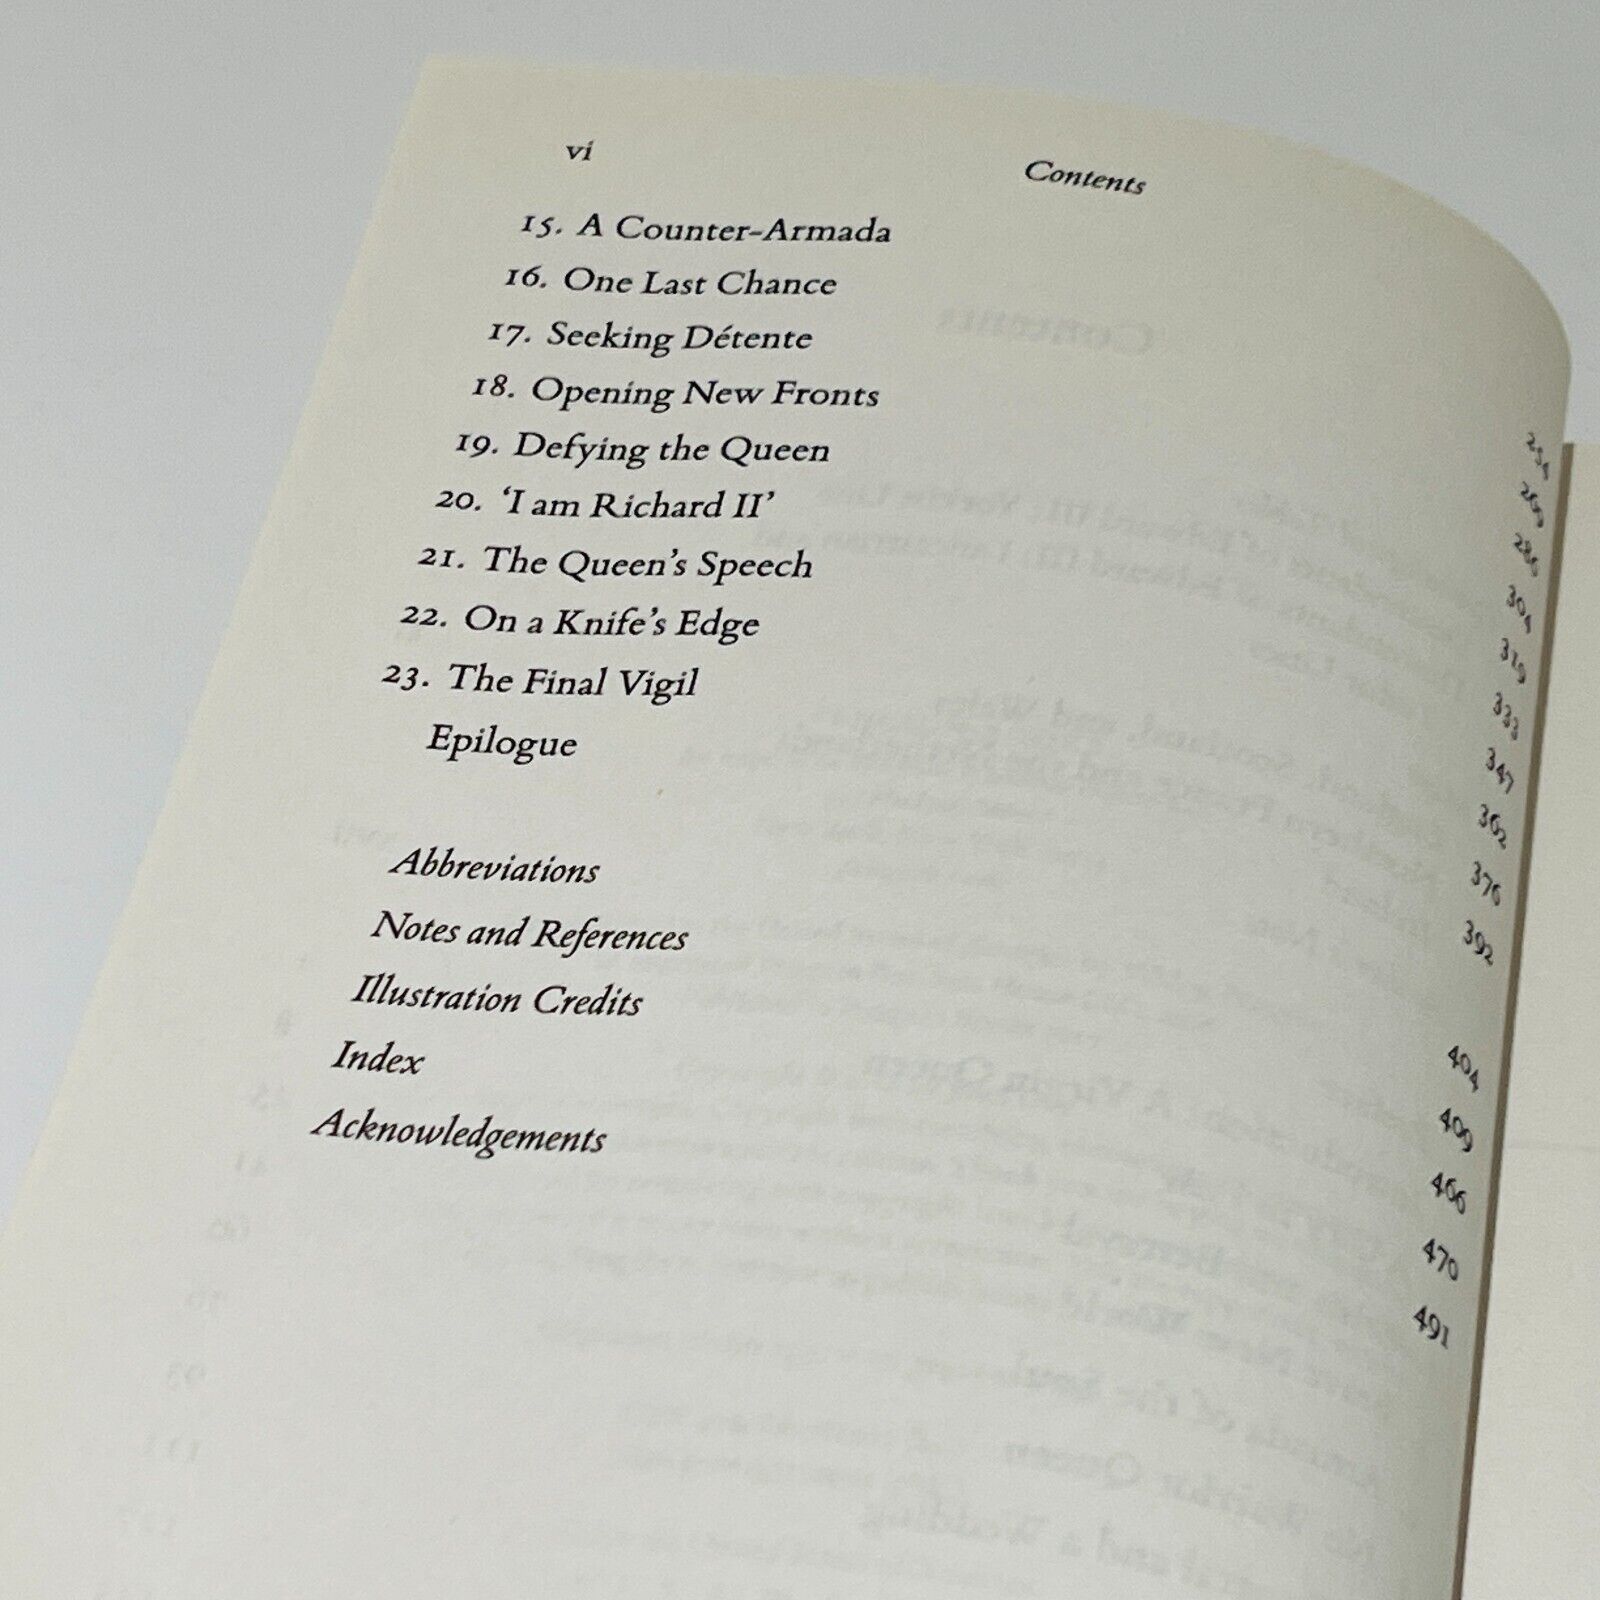 vi Contents
15. A Counter-Armada 254
16. One Last Chance
17. Seeking Détente
18. Opening New Fronts 304
19. Defying the Queen 319
20. ‘I am Richard II’ 333
21. The Queen’s Speech 347
22. On a Knife’s Edge 362
23. The Final Vigil 376
Epilogue 392
Abbreviations 404
Notes and References 409
Illustration Credits 466
Index 470
Acknowledgements 491